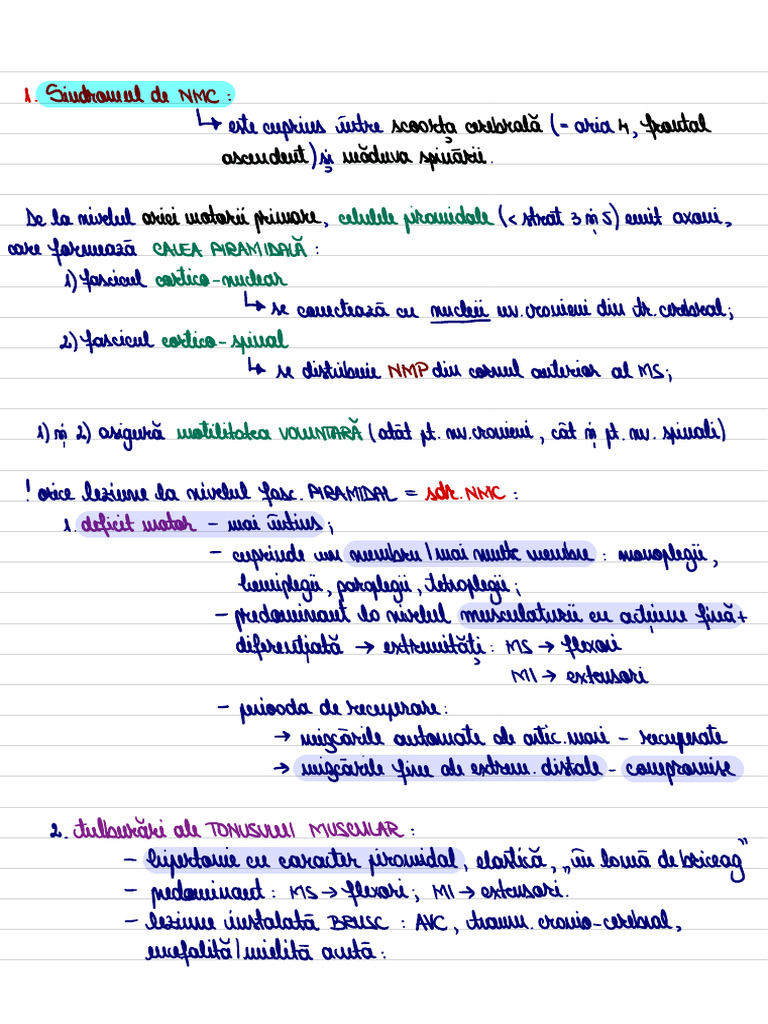 1. Sindromul de NMC:
↳ este cuprins între scoarța cerebrală (= aria 4, frontal
ascendent) și măduva spinării.
De la nivelul ariei motorii primare, celulele piramidale (< strat 3 și 5) emit axoni,
care formează CALEA PIRAMIDALĂ:
1) fascicul cortico-nuclear
↳ se conectează cu nucleii nv. cranieni din tr. cerebral;
2) fascicul cortico-spinal
↳ se distribuie NMP din cornul anterior al MS;
1) și 2) asigură motilitatea VOLUNTARĂ (atât pt. nv. cranieni, cât și pt. nv. spinali)
! orice leziune la nivelul fasc. PIRAMIDAL = sdr. NMC:
1. deficit motor - mai întins;
- cuprinde un membru/mai multe membre: monoplegii,
hemiplegii, paraplegii, tetraplegii;
- predominant la nivelul musculaturii cu acțiune fină+
diferențiată → extremități: MS → flexori
MI → extensori
- perioada de recuperare:
→ mișcările automate ale artic. mari - recuperate
→ mișcările fine ale extrem. distale - compromise
2. tulburări ale TONUSULUI MUSCULAR:
- hipertonie cu caracter piramidal, elastică, „în lamă de briceag"
- predominant: MS → flexori; MI → extensori.
- leziune instalată BRUSC: AVC, traum. cranio-cerebral,
encefalită/mielită acută: